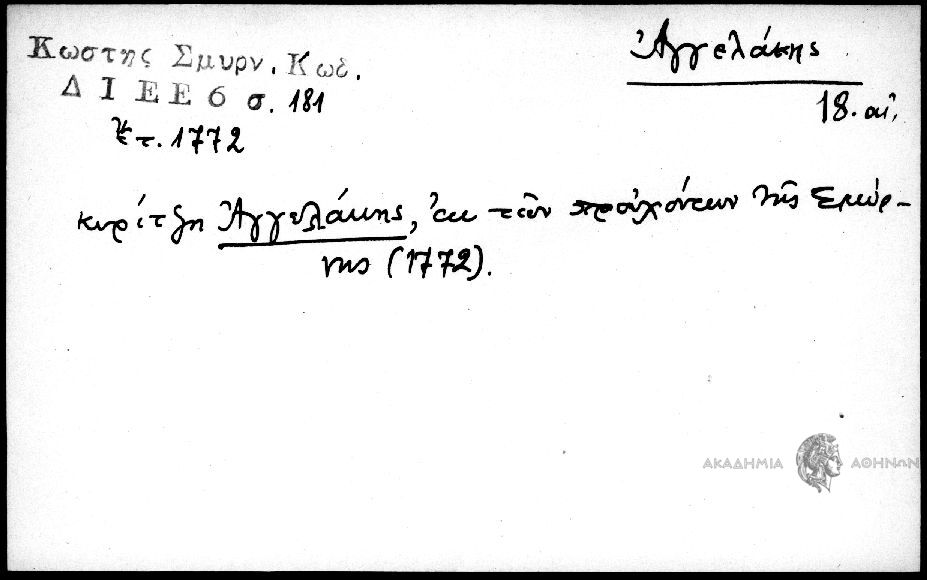 Κωστης Σμυρν. Κωδ.
ΔΙΕΕ 6 σ. 181
ἔτ. 1772
Ἀγγελάκης
18. αἰ.
κυρίτζη Ἀγγελάκης, ἐκ τῶν προὐχόντων τῆς Σμύρ-
νης (1772).
ΑΚΑΔΗΜΙΑ ΑΘΗΝΩΝ